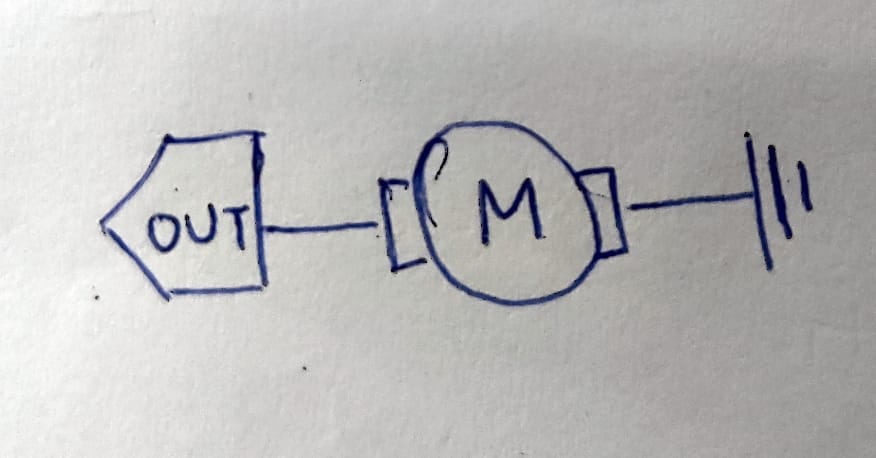 OUT
M